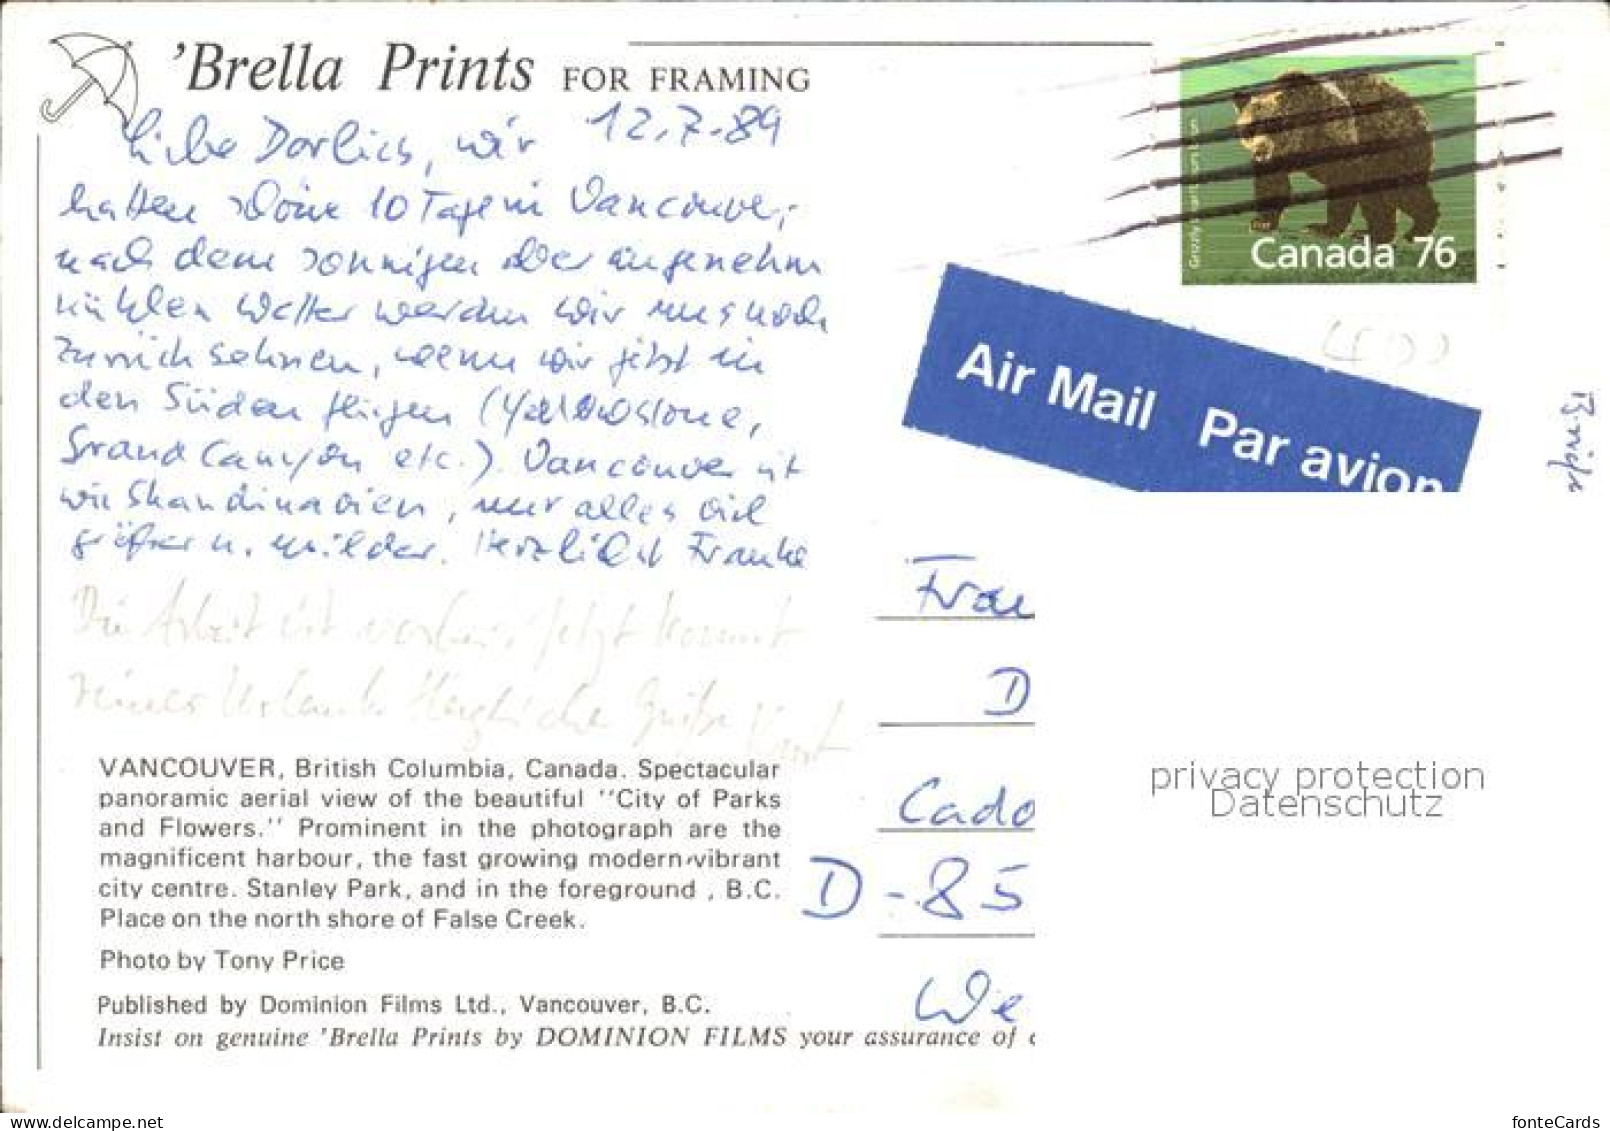 'Brella Prints FOR FRAMING
12.7.89
Liebe Dorlies, wir
hatten schöne 10 Tage in Vancouver,
nach dem sonnigen aber angenehm
kühlen Wetter werden wir uns noch
zurück sehnen, wenn wir jetzt in
den Süden fliegen (Yellowstone,
Grand Canyon etc.). Vancouver ist
wie Skandinavien, nur alles viel
größer u. milder. Herzlichst Frauke
Die Arbeit ist vorbei, jetzt kommt
reiner Urlaub. Herzliche Grüße
VANCOUVER, British Columbia, Canada. Spectacular
panoramic aerial view of the beautiful ''City of Parks
and Flowers.'' Prominent in the photograph are the
magnificent harbour, the fast growing modern vibrant
city centre. Stanley Park, and in the foreground , B.C.
Place on the north shore of False Creek.
Photo by Tony Price
Published by Dominion Films Ltd., Vancouver, B.C.
Insist on genuine 'Brella Prints by DOMINION FILMS your assurance of
Canada 76
Air Mail Par avion
Frau
D
Cado
D-85
We
privacy protection
Datenschutz
delcampe.net
fonteCards